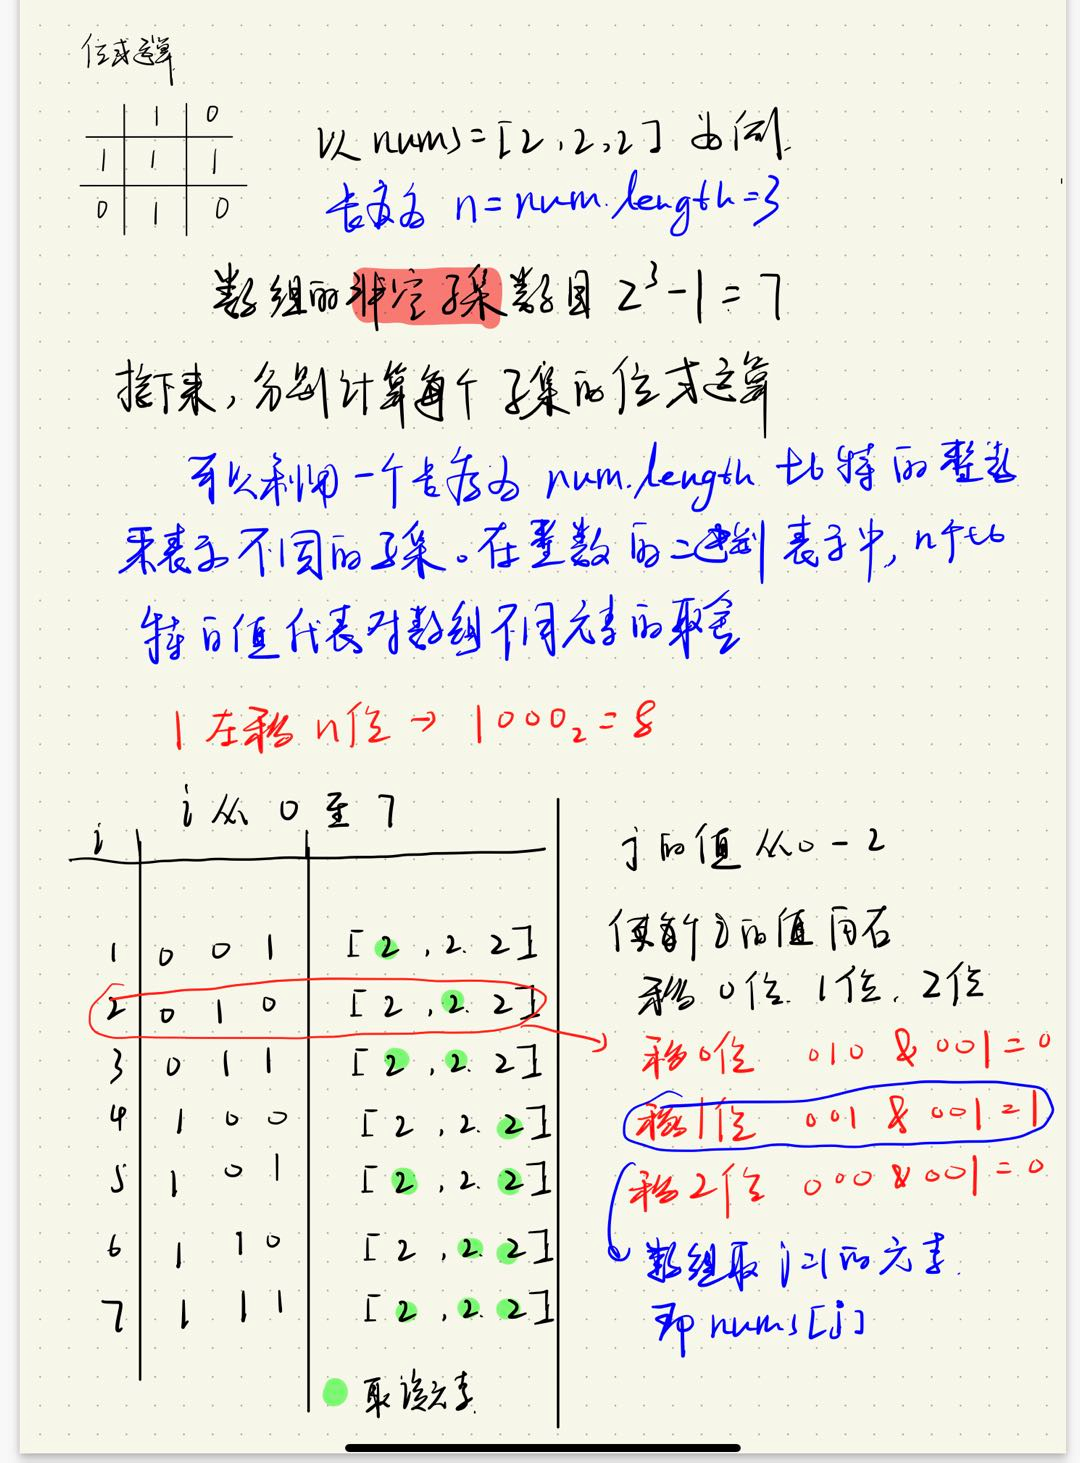 位或运算
1 0
1 1 1
0 1 0
以 nums=[2,2,2] 为例.
长度为 n=num.length=3
数组的非空子集数目 2³-1=7
接下来,分别计算每个子集的位或运算
可以利用一个长度为 num.length 比特的整数
来表示不同的子集。在整数的二进制表示中,n个比
特的值代表对数组不同元素的取舍
1左移n位→1000₂=8
i从0至7
i
1 0 0 1 [2,2.2]
2 0 1 0 [2,2.2]
3 0 1 1 [2,2.2]
4 1 0 0 [2,2.2]
5 1 0 1 [2,2.2]
6 1 1 0 [2,2.2]
7 1 1 1 [2,2.2]
取该元素
j的值从0-2
使每个i的值向右
移0位.1位.2位
移0位 010 & 001=0
移1位 001 & 001=1
移2位 000 & 001=0
数组取j=1的元素.
即nums[j]